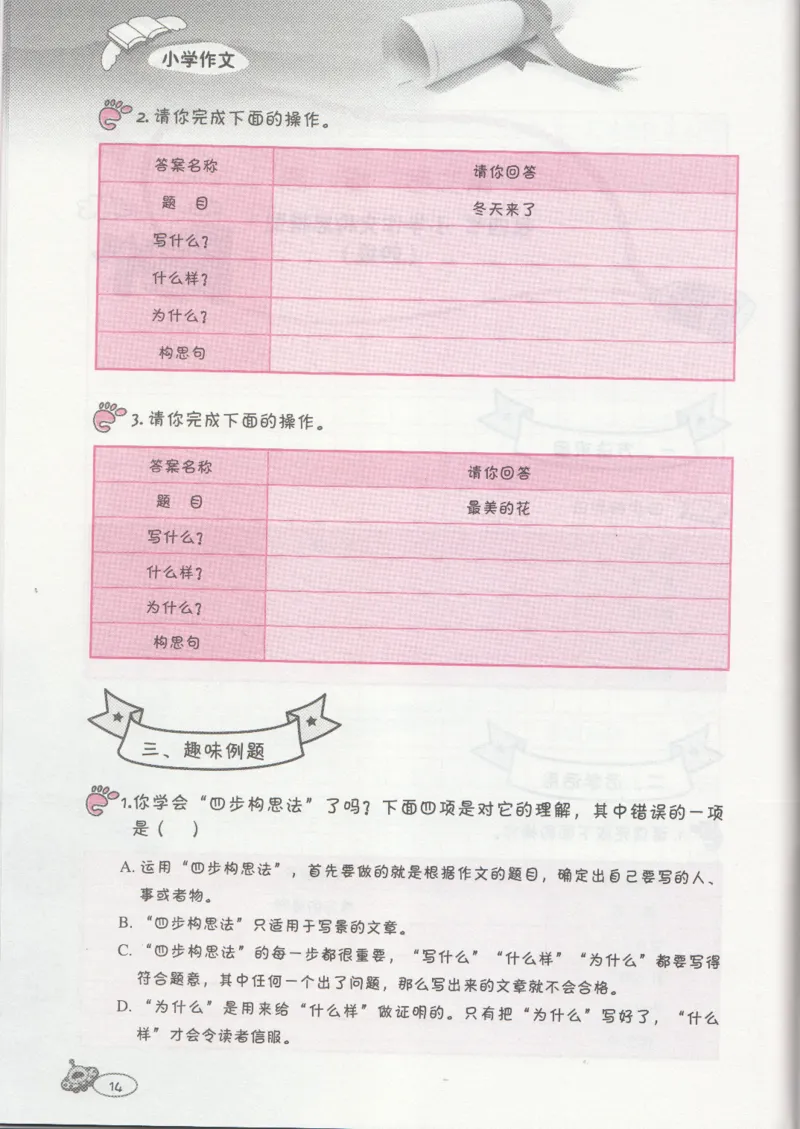 小学作文
2. 请你完成下面的操作。
答案名称 请你回答
题 目 冬天来了
写什么?
什么样?
为什么?
构思句
3. 请你完成下面的操作。
答案名称 请你回答
题 目 最美的花
写什么?
什么样?
为什么?
构思句
三、趣味例题
1.你学会“四步构思法”了吗?下面四项是对它的理解,其中错误的一项
是( )
A. 运用“四步构思法”,首先要做的就是根据作文的题目,确定出自己要写的人、
事或者物。
B. “四步构思法”只适用于写景的文章。
C. “四步构思法”的每一步都很重要,“写什么”“什么样”“为什么”都要写得
符合题意,其中任何一个出了问题,那么写出来的文章就不会合格。
D. “为什么”是用来给“什么样”做证明的。只有把“为什么”写好了,“什么
样”才会令读者信服。
14